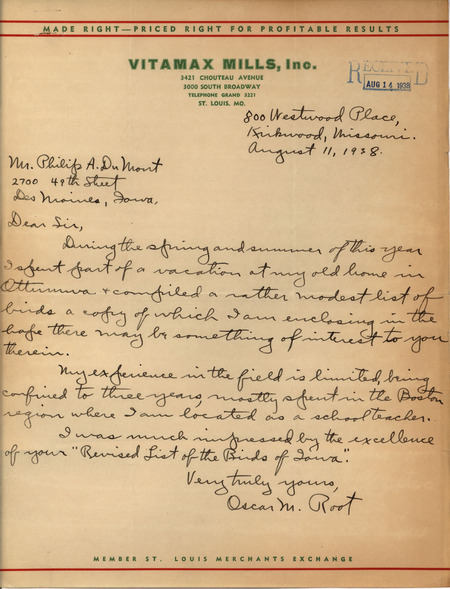 MADE RIGHT—PRICED RIGHT FOR PROFITABLE RESULTS
VITAMAX MILLS, Inc.
3421 CHOUTEAU AVENUE
3000 SOUTH BROADWAY
TELEPHONE GRAND 3221
ST. LOUIS, MO.
RECEIVED
AUG 14 1938
800 Westwood Place,
Kirkwood, Missouri.
August 11, 1938.
Mr. Philip A. DuMont
2700 49th Street
Des Moines, Iowa,
Dear Sir,
During the spring and summer of this year
I spent part of a vacation at my old home in
Ottumwa & compiled a rather modest list of
birds a copy of which I am enclosing in the
hope there may be something of interest to you
therein.
My experience in the field is limited, being
confined to three years, mostly spent in the Boston
region where I am located as a school teacher.
I was much impressed by the excellence
of your "Revised List of the Birds of Iowa".
Very truly yours,
Oscar M. Root
MEMBER ST. LOUIS MERCHANTS EXCHANGE